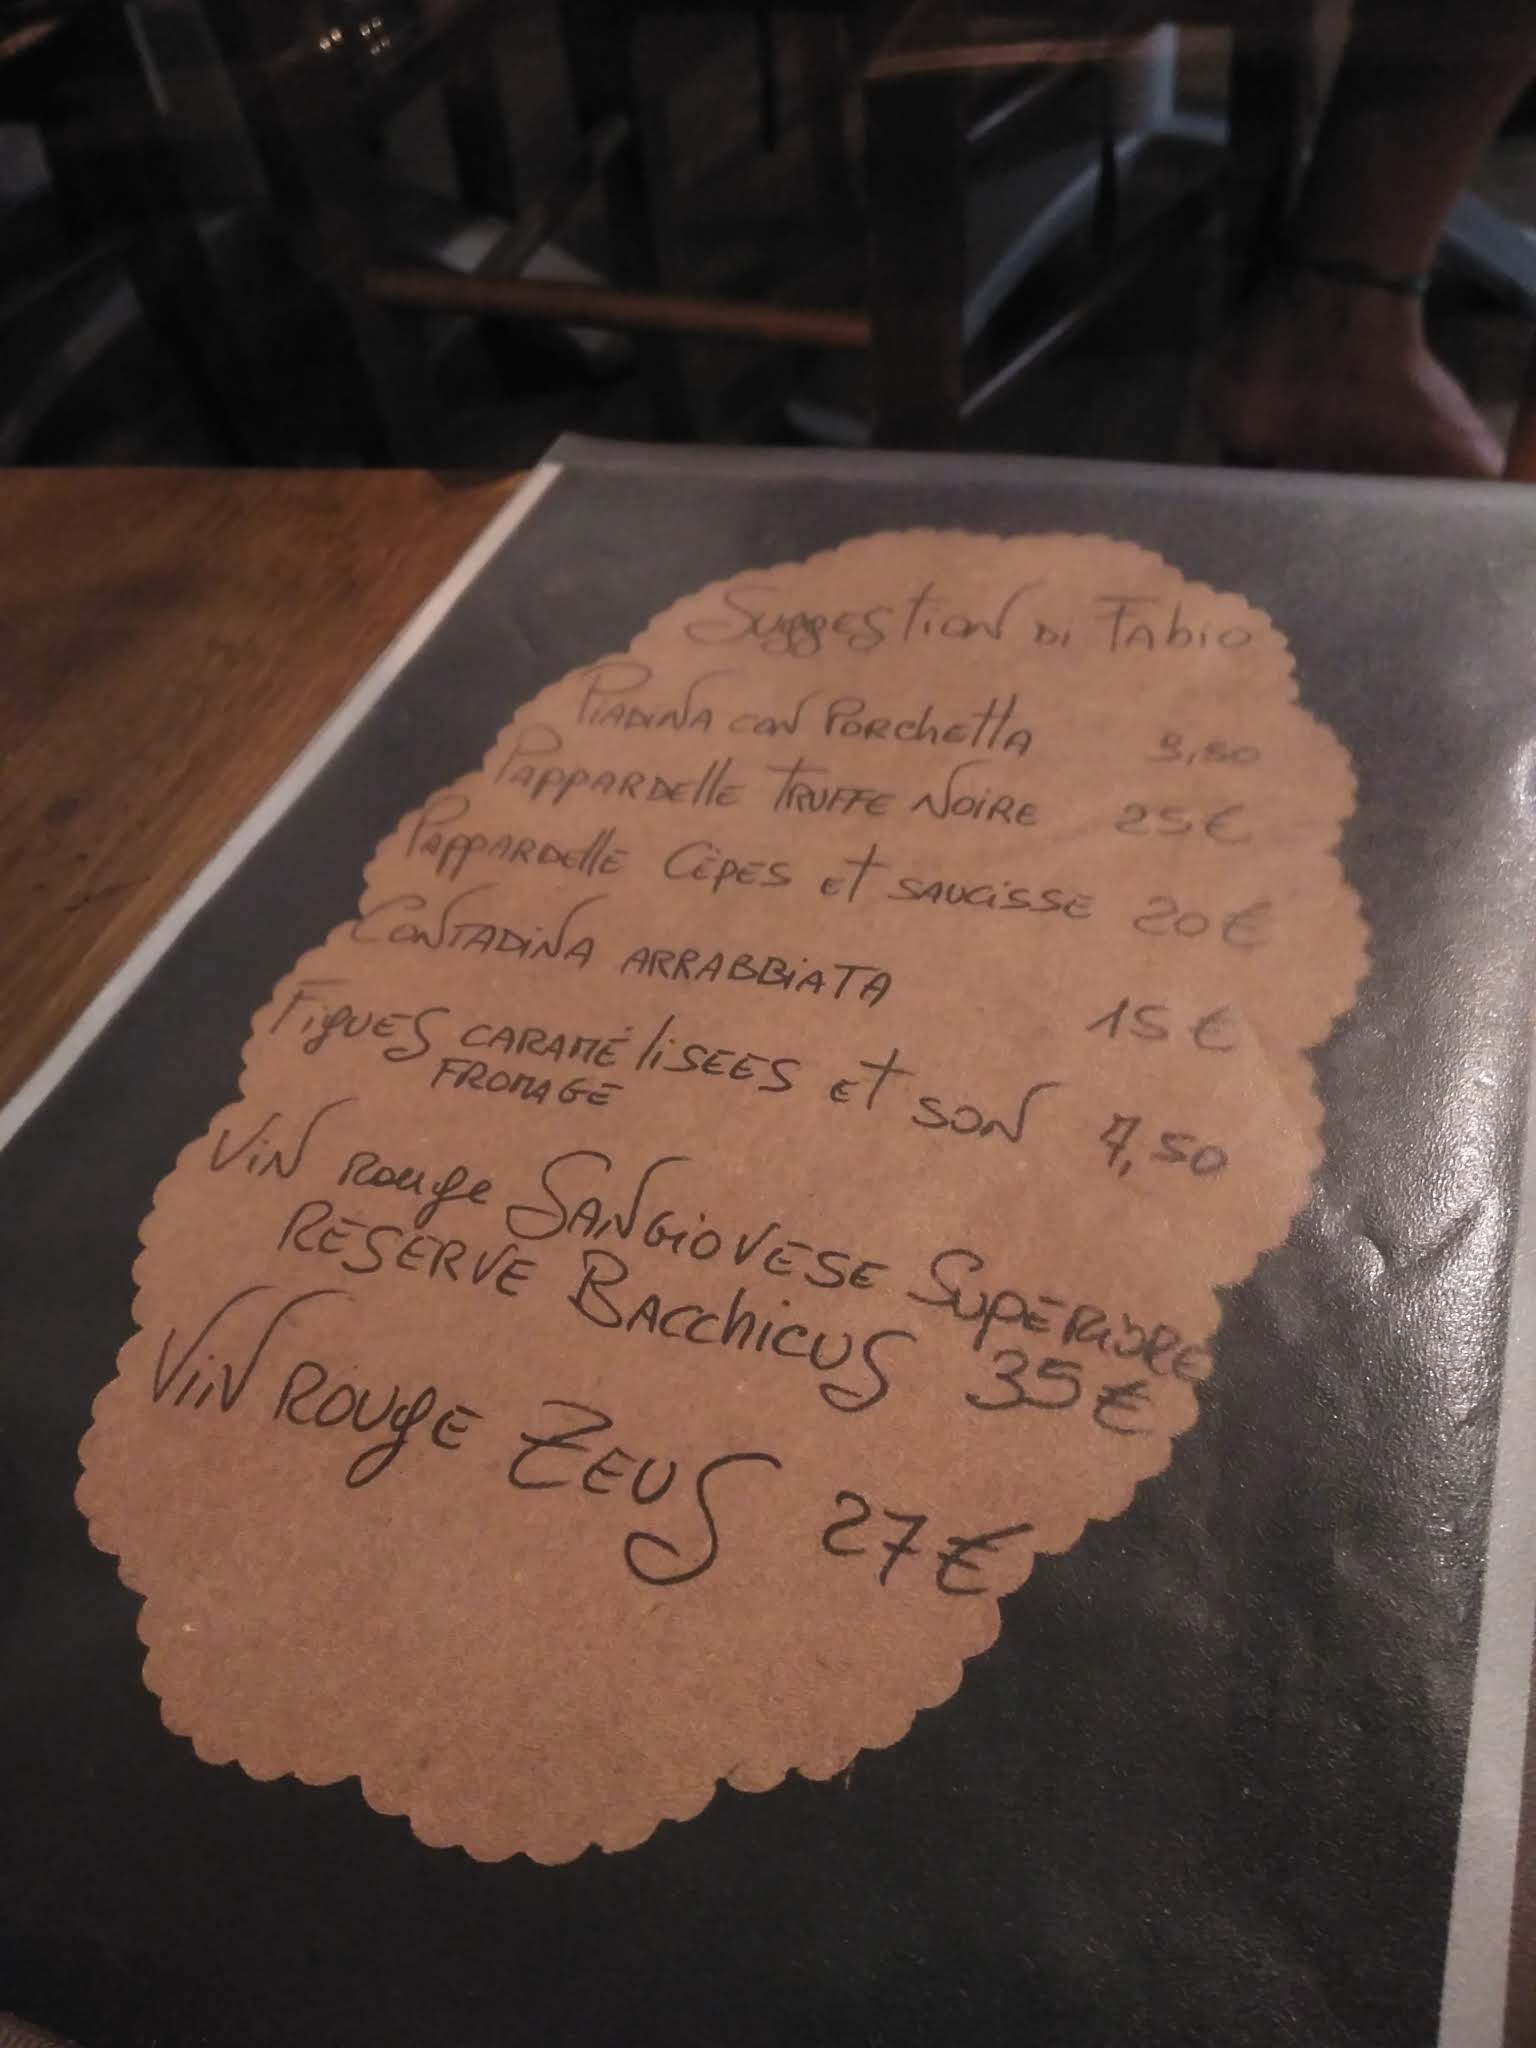 Suggestion di Fabio
Piadina con Porchetta 9,50
Pappardelle truffe noire 25€
Pappardelle Cèpes et saucisse 20€
Contadina arrabbiata 15€
Figues caramélisees et son 7,50
fromage
Vin rouge Sangiovese Superiore
Reserve Bacchicus 35€
Vin rouge Zeus 27€